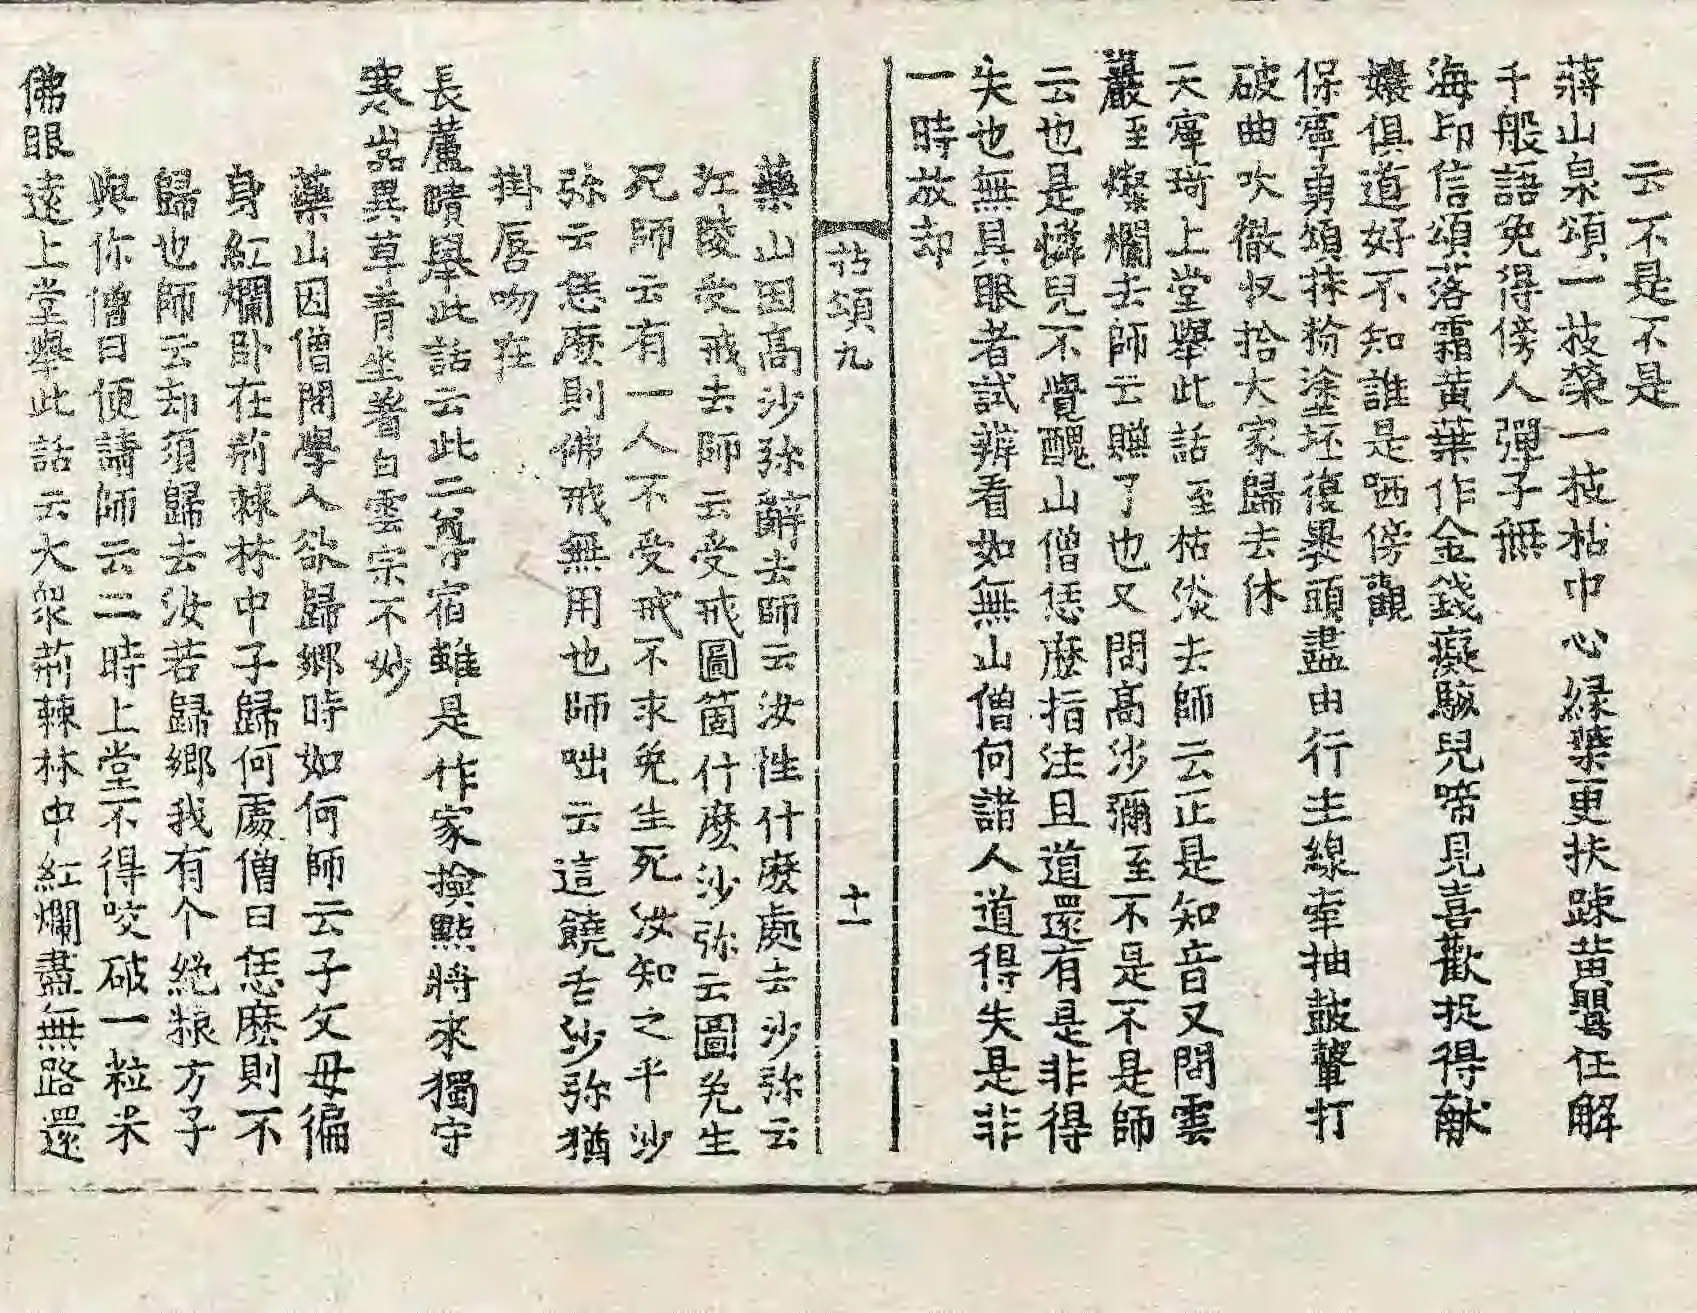 云不是不是
蔣山泉頌一枝榮一枝枯巾心緑葉更扶踈黄鸎任解
千般語免得傍人彈子無
海印信頌落霜黄葉作金錢癡騃兒啼見喜歡捉得献
孃俱道好不知誰是哂傍觀
保寧勇頌抹粉塗坯復暴頭盡由行主線牽抽鼓鼙打
破曲吹徹收拾大家歸去休
天寧琦上堂舉此話至枯淡去師云正是知音又問雲
巖至燦爛去師云賺了也又問高沙彌至不是不是師
云也是憐兒不覺醜山僧恁麽指注且道還有是非得
失也無具眼者試辨看如無山僧向諸人道得失是非
一時放却
拈頌九 十一
藥山因高沙弥辭去師云汝性什麽處去沙弥云
江陵受戒去師云受戒圖箇什麽沙弥云圖免生
死師云有一人不受戒不求免生死汝知之乎沙
弥云恁麽則佛戒無用也師咄云這饒舌沙弥猶
掛唇吻在
長蘆晴舉此話云此二尊宿雖是作家撿點將來獨守
寒嵓異草青坐著白雲宗不妙
藥山因僧問學人欲歸鄉時如何師云子父母徧
身紅爛卧在荊棘林中子歸何處僧曰恁麽則不
歸也師云却須歸去汝若歸鄉我有个絶粮方子
與你僧曰便請師云二時上堂不得咬破一粒米
佛眼遠上堂舉此話云大衆荊棘林中紅爛盡無路還